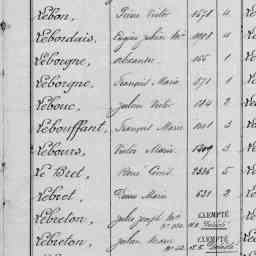 Lebon, Pierre Victor 1571 4
Lebordais, Eugène Julien Mie 1101 4
Leborgne, Alexandre 155 1
Leborgne, François Marie 571 1
Lebouc, Julien Victor 184 2
Lebouffant, François Marie 1001 3
Lebours, Victor Marie 3
Le Bret, Pierre Louis 2335 5
Lebret, Pierre Marie 631 2
Lebreton, Jules Joseph Mie EXEMPTÉ
Lebreton, Julien Marie EXEMPTÉ